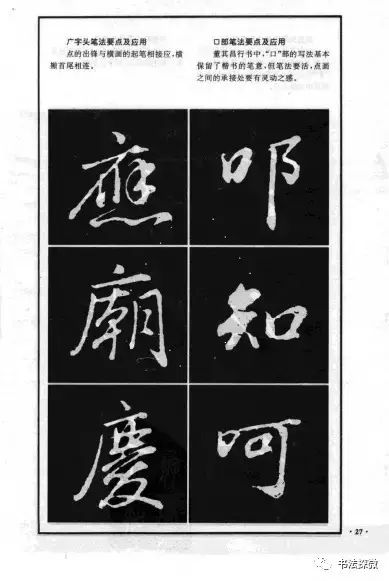 广字头笔法要点及应用
点的出锋与横画的起笔相接应,横
撇首尾相连。
口部笔法要点及应用
董其昌行书中,“口”部的写法基本
保留了楷书的笔意,但笔法要活,点画
之间的承接处要有灵动之感。
應
廟
慶
叩
知
呵
·27·
书法探微